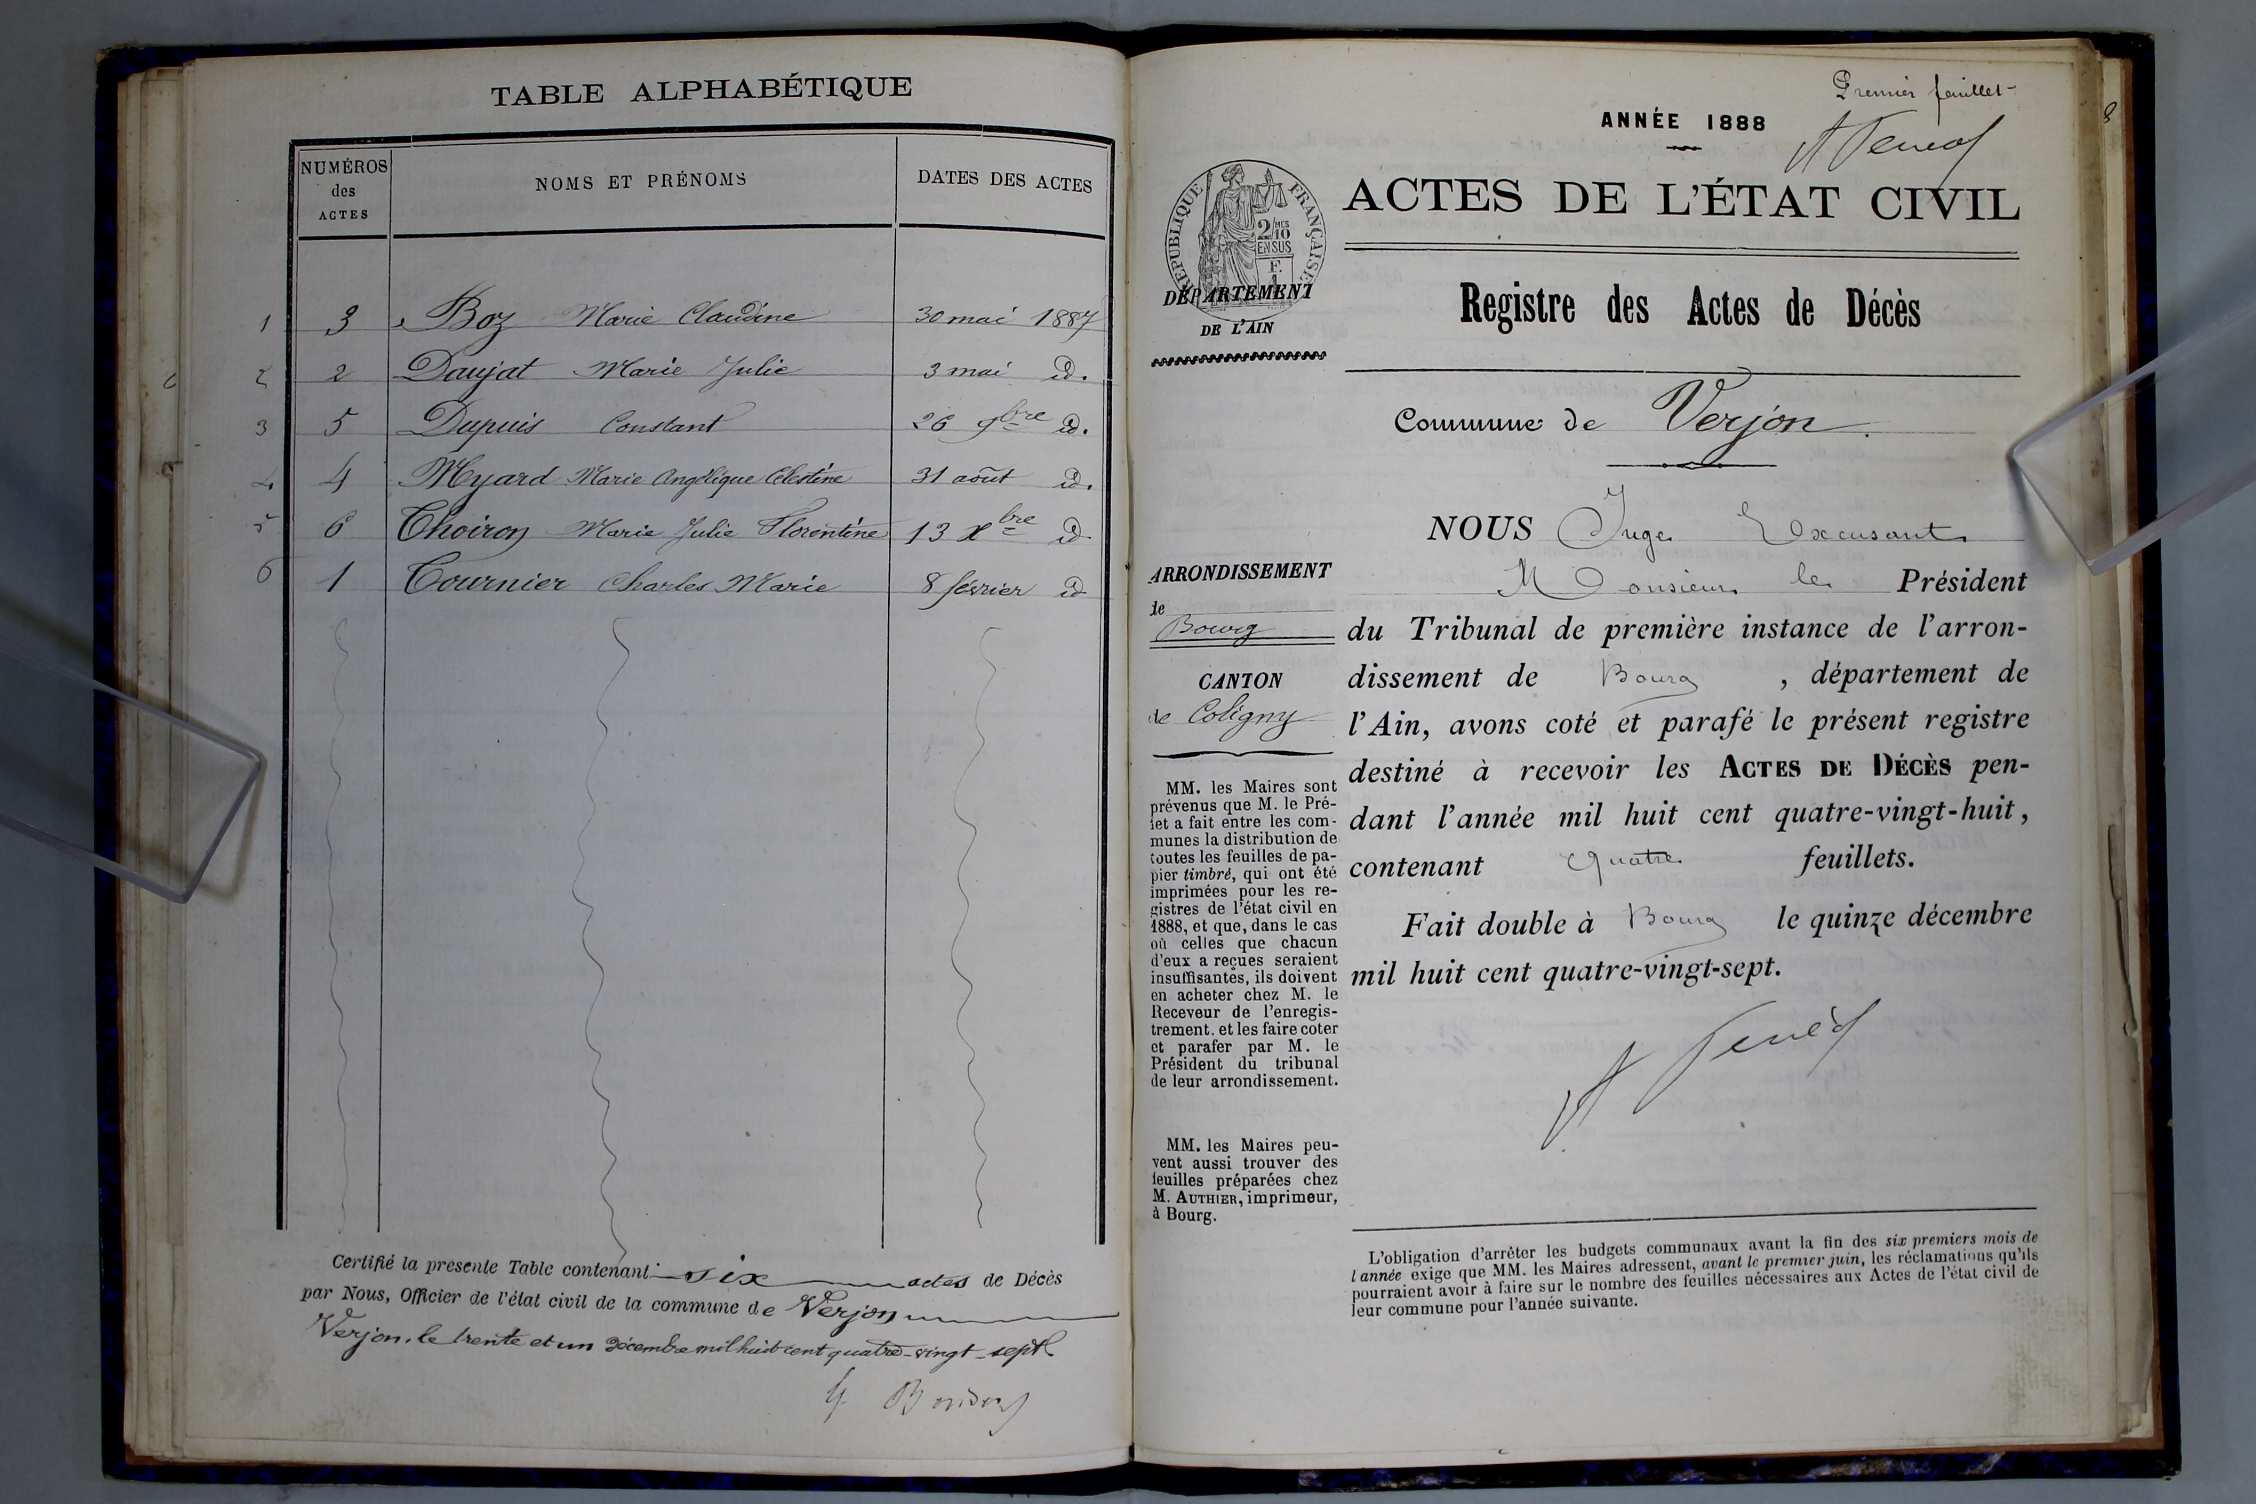 TABLE ALPHABÉTIQUE
NUMÉROS des ACTES
NOMS ET PRÉNOMS
DATES DES ACTES
1 3 Boz Marie Claudine 30 mai 1887
2 2 Daujat Marie Julie 3 mai id.
3 5 Dupuis Constant 26 9bre id.
4 4 Myard Marie Angélique Célestine 31 août id.
5 6 Thoiron Marie Julie Florentine 13 Xbre id
6 1 Tournier Charles Marie 8 février id
Certifié la présente Table contenant six actes de Décès
par Nous, Officier de l'état civil de la commune de Verjon
Verjon, le trente et un décembre mil huit cent quatre-vingt-sept
Premier feuillet
ANNÉE 1888
ACTES DE L'ÉTAT CIVIL
RÉPUBLIQUE FRANÇAISE
2/10 EN SUS
DÉPARTEMENT
DE L'AIN
Registre des Actes de Décès
Commune de Verjon.
ARRONDISSEMENT
de
Bourg
CANTON
de Coligny
MM. les Maires sont
prévenus que M. le Pré-
fet a fait entre les com-
munes la distribution de
toutes les feuilles de pa-
pier timbré, qui ont été
imprimées pour les re-
gistres de l'état civil en
1888, et que, dans le cas
où celles que chacun
d'eux a reçues seraient
insuffisantes, ils doivent
en acheter chez M. le
Receveur de l'enregis-
trement. et les faire coter
et parafer par M. le
Président du tribunal
de leur arrondissement.
MM. les Maires peu-
vent aussi trouver des
feuilles préparées chez
M. AUTHIER, imprimeur,
à Bourg.
NOUS Juge Excusant
Monsieur le Président
du Tribunal de première instance de l'arron-
dissement de Bourg , département de
l'Ain, avons coté et parafé le présent registre
destiné à recevoir les ACTES DE DÉCÈS pen-
dant l'année mil huit cent quatre-vingt-huit,
contenant quatre feuillets.
Fait double à Bourg le quinze décembre
mil huit cent quatre-vingt-sept.
L'obligation d'arrêter les budgets communaux avant la fin des six premiers mois de
l'année exige que MM. les Maires adressent, avant le premier juin, les réclamations qu'ils
pourraient avoir à faire sur le nombre des feuilles nécessaires aux Actes de l'état civil de
leur commune pour l'année suivante.